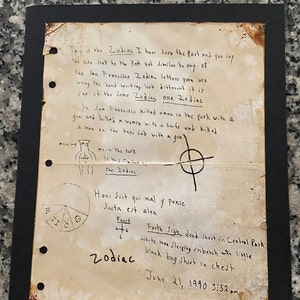 This is the Zodiac I have seen the Post and you say
the note sent to the Post not similar to any of
the San Francisco Zodiac letters you are
wrong the hand writing look different it is
one of the same Zodiac one Zodiac
In San Francisco killed a man in the park with a
gun and killed a women with a knife and killed
a man in the taxi cab with a gun
me in the park
the Zodiac
Honi Soit qui mal y pense
Jacta est alea
Faust
Fourth Sign dead shoot in Central Park
white man sleeping on bench with little
black bag shoot in chest
Zodiac
June 21, 1990 3:52 am